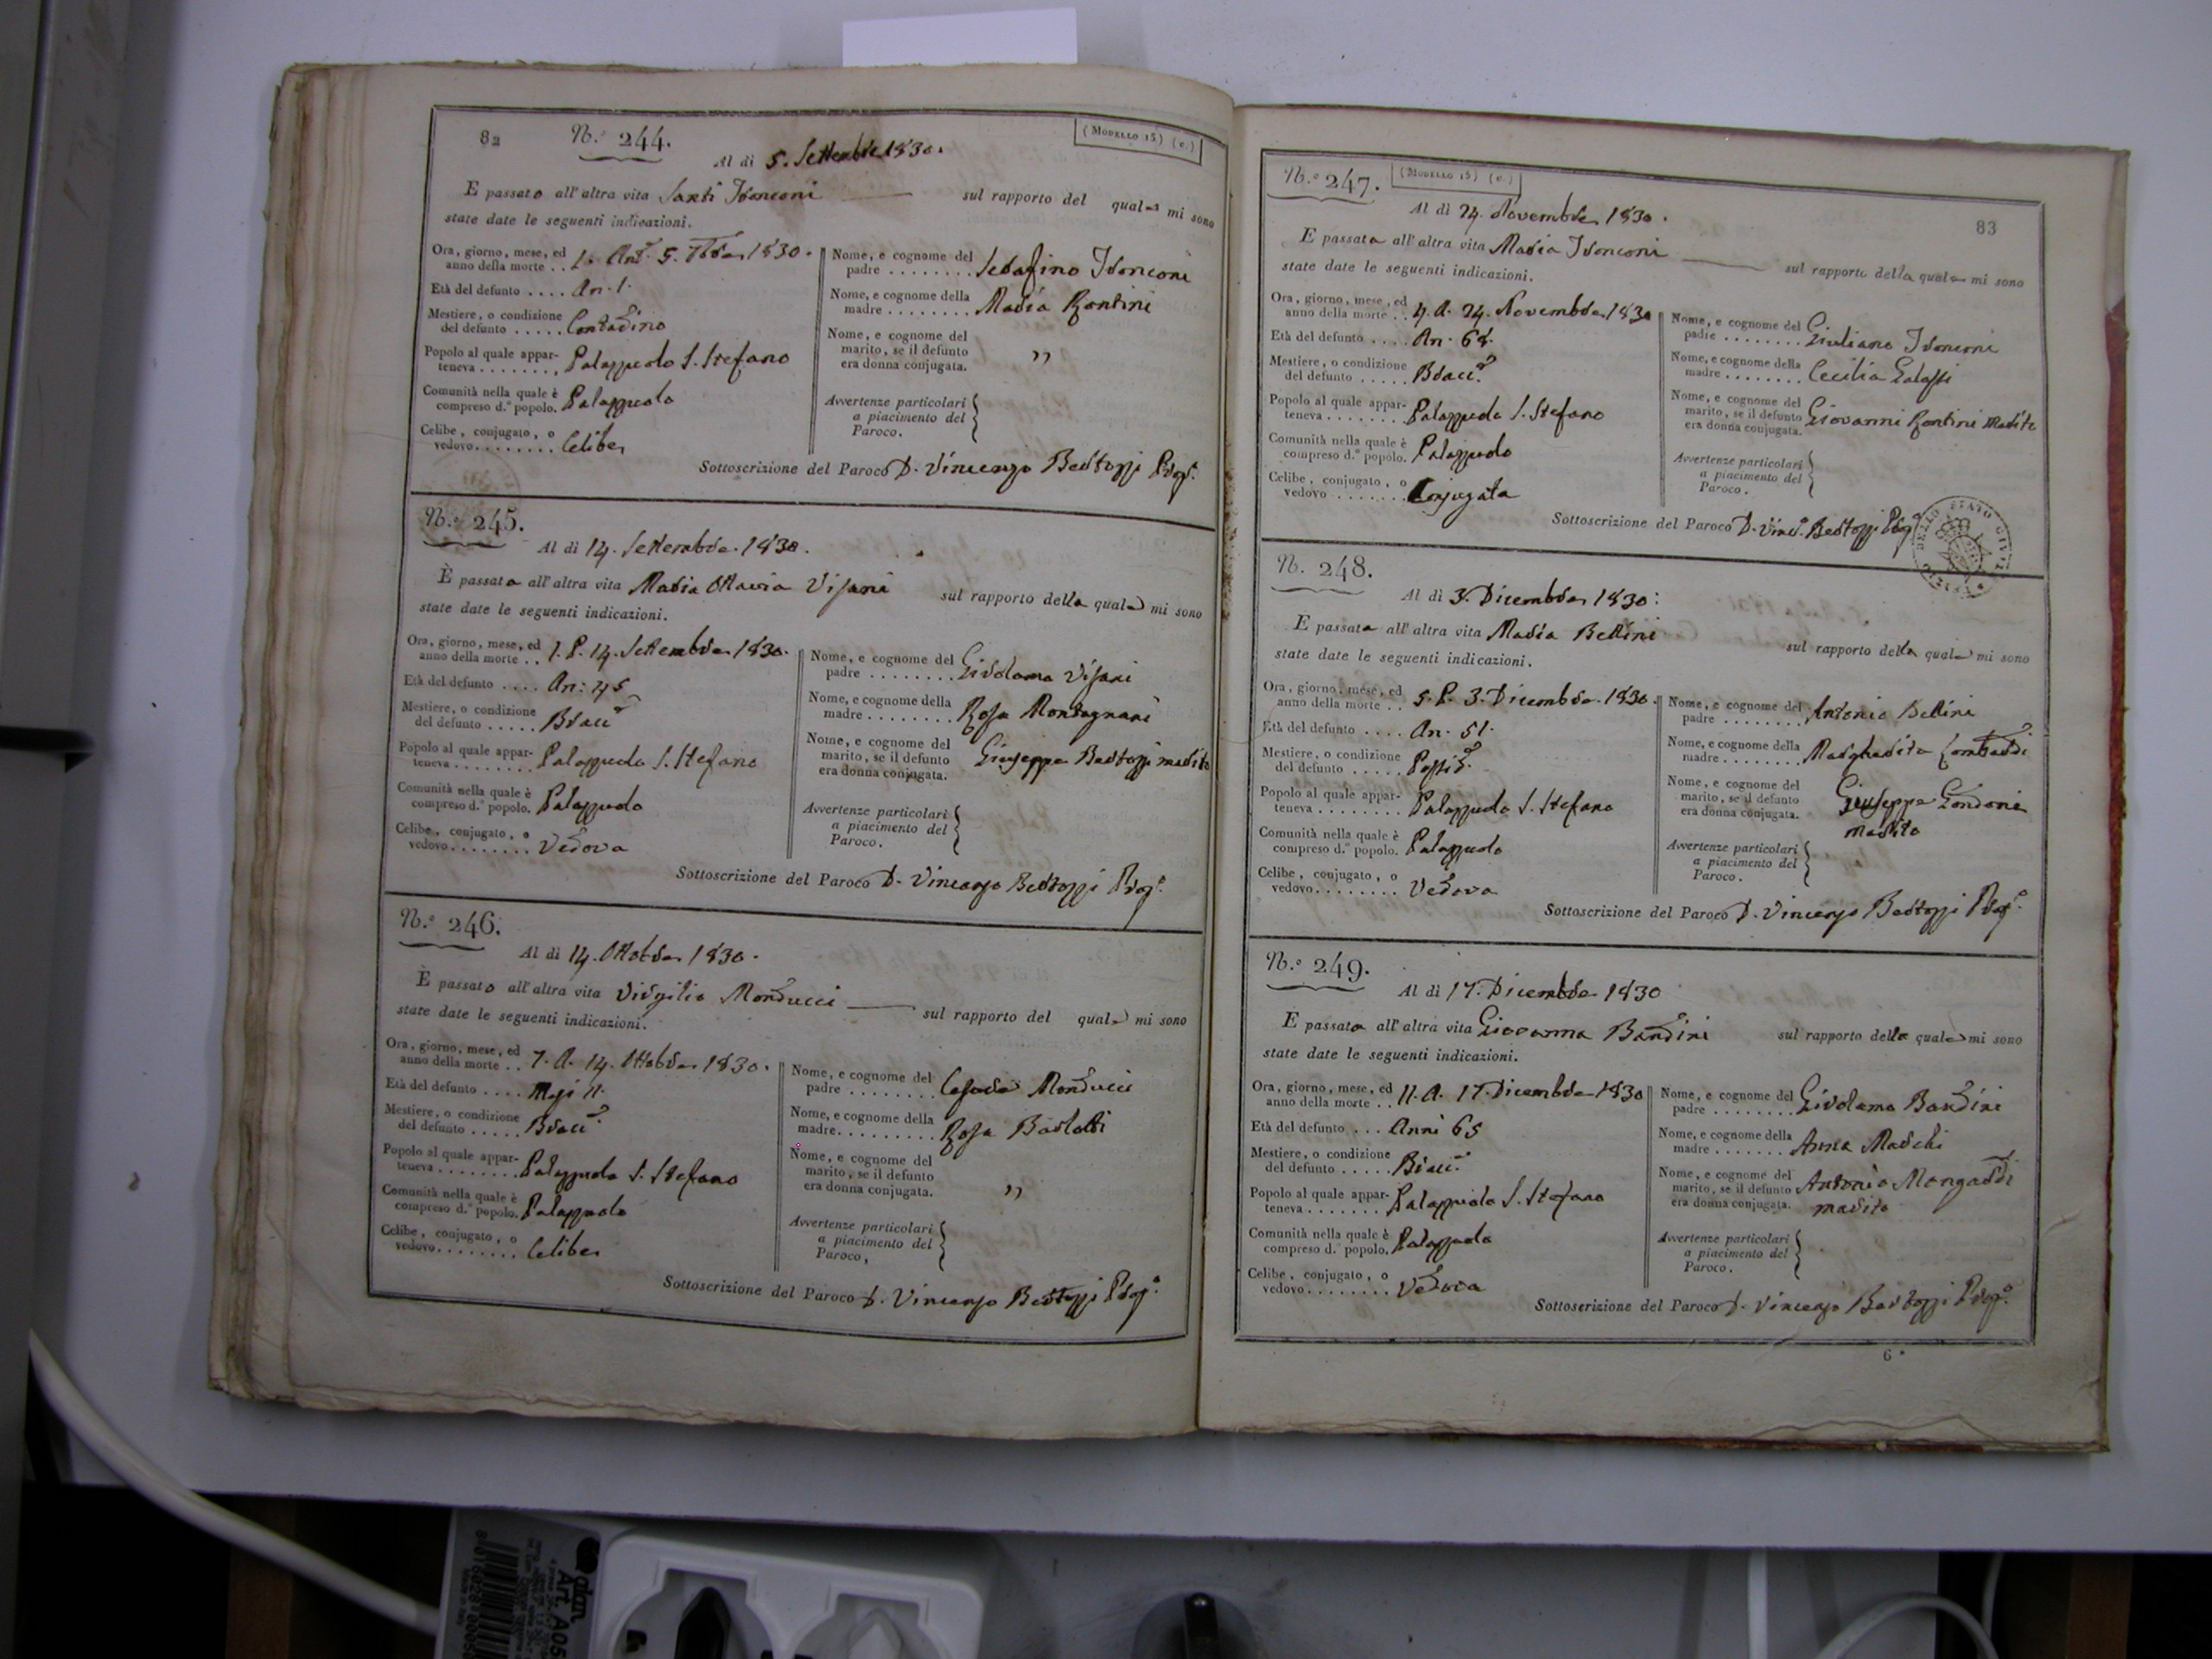 82 N.° 244. (Modello 15) (c.)
Al dì 5. Settembre 1830.
E passato all'altra vita Santi Tronconi sul rapporto del quale mi sono
state date le seguenti indicazioni.
Ora, giorno, mese, ed
anno della morte . . 1. Ant. 5. 7bre 1830.
Età del defunto . . . . An. 1.
Mestiere, o condizione
del defunto . . . . . Contadino
Popolo al quale appar-
teneva . . . . . . . , Palazzuolo S. Stefano
Comunità nella quale è
compreso d.° popolo. Palazzuolo
Celibe, conjugato, o
vedovo. . . . . . . . Celibe
Nome, e cognome del
padre . . . . . . . . Serafino Tronconi
Nome, e cognome della
madre . . . . . . . . Maria Rontini
Nome, e cognome del
marito, se il defunto
era donna conjugata. "
Avvertenze particolari
a piacimento del
Paroco.
Sottoscrizione del Paroco D. Vincenzo Bertozzi Prop.°
N.° 245.
Al dì 14. Settembre. 1830.
È passata all'altra vita Maria Ottavia Visani sul rapporto della quale mi sono
state date le seguenti indicazioni.
Ora, giorno, mese, ed
anno della morte . . 1. P. 14. Settembre. 1830.
Età del defunto . . . . An: 45
Mestiere, o condizione
del defunto . . . . . Bracc.
Popolo al quale appar-
teneva . . . . . . . . Palazzuolo S. Stefano
Comunità nella quale è
compreso d.° popolo. Palazzuolo
Celibe, conjugato, o
vedovo. . . . . . . . Vedova
Nome, e cognome del
padre . . . . . . . . Girolamo Visani
Nome, e cognome della
madre . . . . . . . . Rosa Montagnani
Nome, e cognome del
marito, se il defunto
era donna conjugata. Giuseppe Bertozzi marito
Avvertenze particolari
a piacimento del
Paroco.
Sottoscrizione del Paroco D. Vincenzo Bertozzi Prop.°
N.° 246.
Al dì 14. Ottobre 1830.
È passato all'altra vita Virgilio Monducci sul rapporto del quale mi sono
state date le seguenti indicazioni.
Ora, giorno, mese, ed
anno della morte . . 7. A. 14. Ottobre 1830.
Età del defunto . . . . Mesi 11.
Mestiere, o condizione
del defunto . . . . . Bracc.
Popolo al quale appar-
teneva . . . . . . . . Palazzuolo S. Stefano
Comunità nella quale è
compreso d.° popolo. Palazzuolo
Celibe, conjugato, o
vedovo. . . . . . . . Celibe
Nome, e cognome del
padre . . . . . . . . Cesare Monducci
Nome, e cognome della
madre. . . . . . . . . Rosa Bartolti
Nome, e cognome del
marito, se il defunto
era donna conjugata. "
Avvertenze particolari
a piacimento del
Paroco,
Sottoscrizione del Paroco D. Vincenzo Bertozzi Prop.°
N.° 247. (Modello 15) (c.)
83
Al dì 24. Novembre 1830.
E passata all'altra vita Maria Tronconi sul rapporto della quale mi sono
state date le seguenti indicazioni.
Ora, giorno, mese, ed
anno della morte . . 4. A. 24. Novembre. 1830
Età del defunto . . . . An. 68.
Mestiere, o condizione
del defunto . . . . . Bracc.
Popolo al quale appar-
teneva . . . . . . . Palazzuolo S. Stefano
Comunità nella quale è
compreso d.° popolo. Palazzuolo
Celibe, conjugato, o
vedovo . . . . . . . Conjugata
Nome, e cognome del
padre . . . . . . . . Giuliano Tronconi
Nome, e cognome della
madre . . . . . . . . Cecilia Galassi
Nome, e cognome del
marito, se il defunto
era donna conjugata. Giovanni Rontini Marito
Avvertenze particolari
a piacimento del
Paroco.
Sottoscrizione del Paroco D. Vinc.° Bertozzi Prop.
STATO CIVILE
N. 248.
Al dì 3. Dicembre 1830:
E passata all'altra vita Maria Bellini sul rapporto della quale mi sono
state date le seguenti indicazioni.
Ora, giorno, mese, ed
anno della morte . . 5. P. 3. Dicembre. 1830.
Età del defunto . . . . An. 51.
Mestiere, o condizione
del defunto . . . . . Possid.
Popolo al quale appar-
teneva . . . . . . . . Palazzuolo S. Stefano
Comunità nella quale è
compreso d.° popolo. Palazzuolo
Celibe, conjugato, o
vedovo. . . . . . . . Vedova
Nome, e cognome del
padre . . . . . . . . Antonio Bellini
Nome, e cognome della
madre . . . . . . . . Margharita Lombardi
Nome, e cognome del
marito, se il defunto
era donna conjugata. Giuseppe
marito
Avvertenze particolari
a piacimento del
Paroco.
Sottoscrizione del Paroco D. Vincenzo Bertozzi Prop.°
N.° 249.
Al dì 17. Dicembre 1830
E passata all'altra vita Giovanna Bandini sul rapporto della quale mi sono
state date le seguenti indicazioni.
Ora, giorno, mese, ed
anno della morte . . 11. A. 17. Dicembre 1830
Età del defunto . . . Anni 65
Mestiere, o condizione
del defunto . . . . . Bracc.
Popolo al quale appar-
teneva . . . . . . . Palazzuolo S. Stefano
Comunità nella quale è
compreso d.° popolo. Palazzuolo
Celibe, conjugato, o
vedovo. . . . . . . . Vedova
Nome, e cognome del
padre . . . . . . . . Girolamo Bandini
Nome, e cognome della
madre . . . . . . . Anna Marchi
Nome, e cognome del
marito, se il defunto
era donna conjugata. Antonio Mongardi
marito
Avvertenze particolari
a piacimento del
Paroco.
Sottoscrizione del Paroco D. Vincenzo Bertozzi Prop.°
6 *
Art. A05